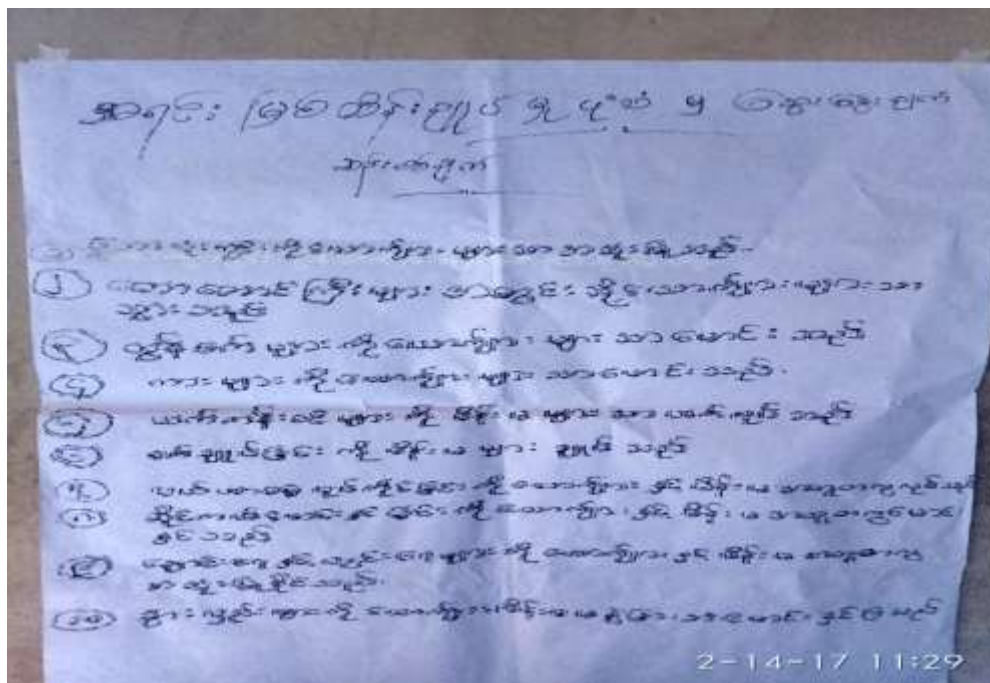 အရင်းအမြစ်ထိန်းချုပ်မှု ပုံစံ ၅ ဆွေးနွေးချက်
ဆန်းတစ်ရွက်
ကို ယောကျ်ား များသာ အသုံးပြုသည်။
၂ တောတောင်ကြီးများ အတွင်း သို့ ယောကျ်ားများသာ
သွားသည်
၃ ထွန်စက် များ ကို ယောကျ်ား များ သာ မောင်း သည်
၄ ကားများ ကို ယောကျ်ား များ သာမောင်းသည်။
၅ ယက်ကန်းစင် များ ကို မိန်းမ များ သာ ယက်လုပ် သည်
၆ စက်ချုပ်ခြင်း ကို မိန်းမ များ ချုပ် သည်
၇ လုပ်ကိုင်ခြင်း ကို ယောကျ်ား နှင့် မိန်းမ အတူတကွလုပ်သည်
၈ ဆိုင်ကယ်မောင်းနှင်ခြင်း ကို ယောကျ်ား နှင့် မိန်းမ အတူတကွမောင်း
နှင်သည်
၉ နှင့် များ ကို ယောကျ်ား နှင့် မိန်းမ အတူတကွ
အသုံးပြုနိုင်သည်။
၁၀ နွားလှည်းများကို ယောကျ်ား မိန်းမ မခွဲခြားဘဲ မောင်းနှင်ကြသည်
2-14-17 11:29